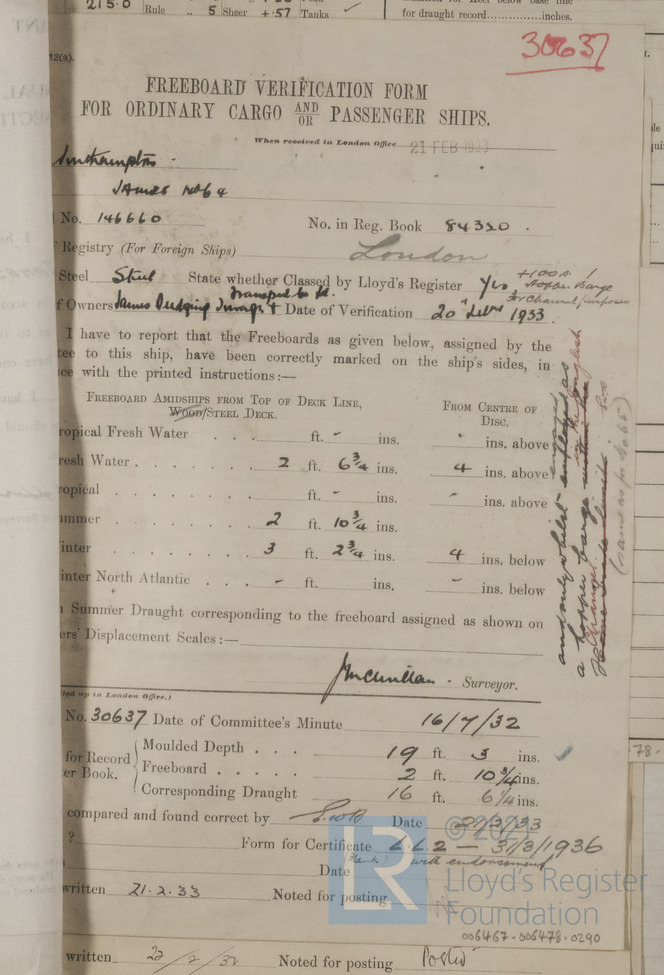 215.0 Rule „ 5 Sheer +.57 Tanks ✓
for draught record..............inches.
30637
12(a).
FREEBOARD VERIFICATION FORM
FOR ORDINARY CARGO AND/OR PASSENGER SHIPS.
When received in London Office 21 FEB 1933
Southampton -
JAMES No 64
No. 146660 No. in Reg. Book 84320.
Registry (For Foreign Ships) London
Steel Steel State whether Classed by Lloyd's Register Yes, +100A1
Hopper Barge
for Channel purposes
f Owners James Dredging Towage & Transport Co Ld. Date of Verification 20th Feb 1933.
I have to report that the Freeboards as given below, assigned by the
tee to this ship, have been correctly marked on the ship's sides, in
ce with the printed instructions:—
FREEBOARD AMIDSHIPS FROM TOP OF DECK LINE,
WOOD/STEEL DECK.
FROM CENTRE OF
DISC.
ropical Fresh Water . . . ft. - ins. - ins. above
resh Water . . . . . . . 2 ft. 6 3/4 ins. 4 ins. above
ropical . . . . . . . . ft. - ins. - ins. above
ummer . . . . . . . . 2 ft. 10 3/4 ins.
inter . . . . . . . . 3 ft. 2 3/4 ins. 4 ins. below
inter North Atlantic . . . - ft. ins. - ins. below
and only whilst employed as
a hopper barge in the English
Channel
Summer Draught corresponding to the freeboard assigned as shown on
ers' Displacement Scales:—
J McMillan. Surveyor.
led up in London Office.)
No. 30637 Date of Committee's Minute 16/7/32
for Record
er Book.
Moulded Depth . . . 19 ft. 3 ins.
Freeboard . . . . . 2 ft. 10 3/4 ins.
Corresponding Draught 16 ft. 6 1/4 ins.
compared and found correct by Date 21/2/33
? Form for Certificate L.L.2 — 31/3/1936
(Blank) with endorsement
Date
written 21.2.33 Noted for posting
© 2021
LR
Lloyd's Register
Foundation
006467-006478-0290
-78-
written 22/2/32 Noted for posting Posted